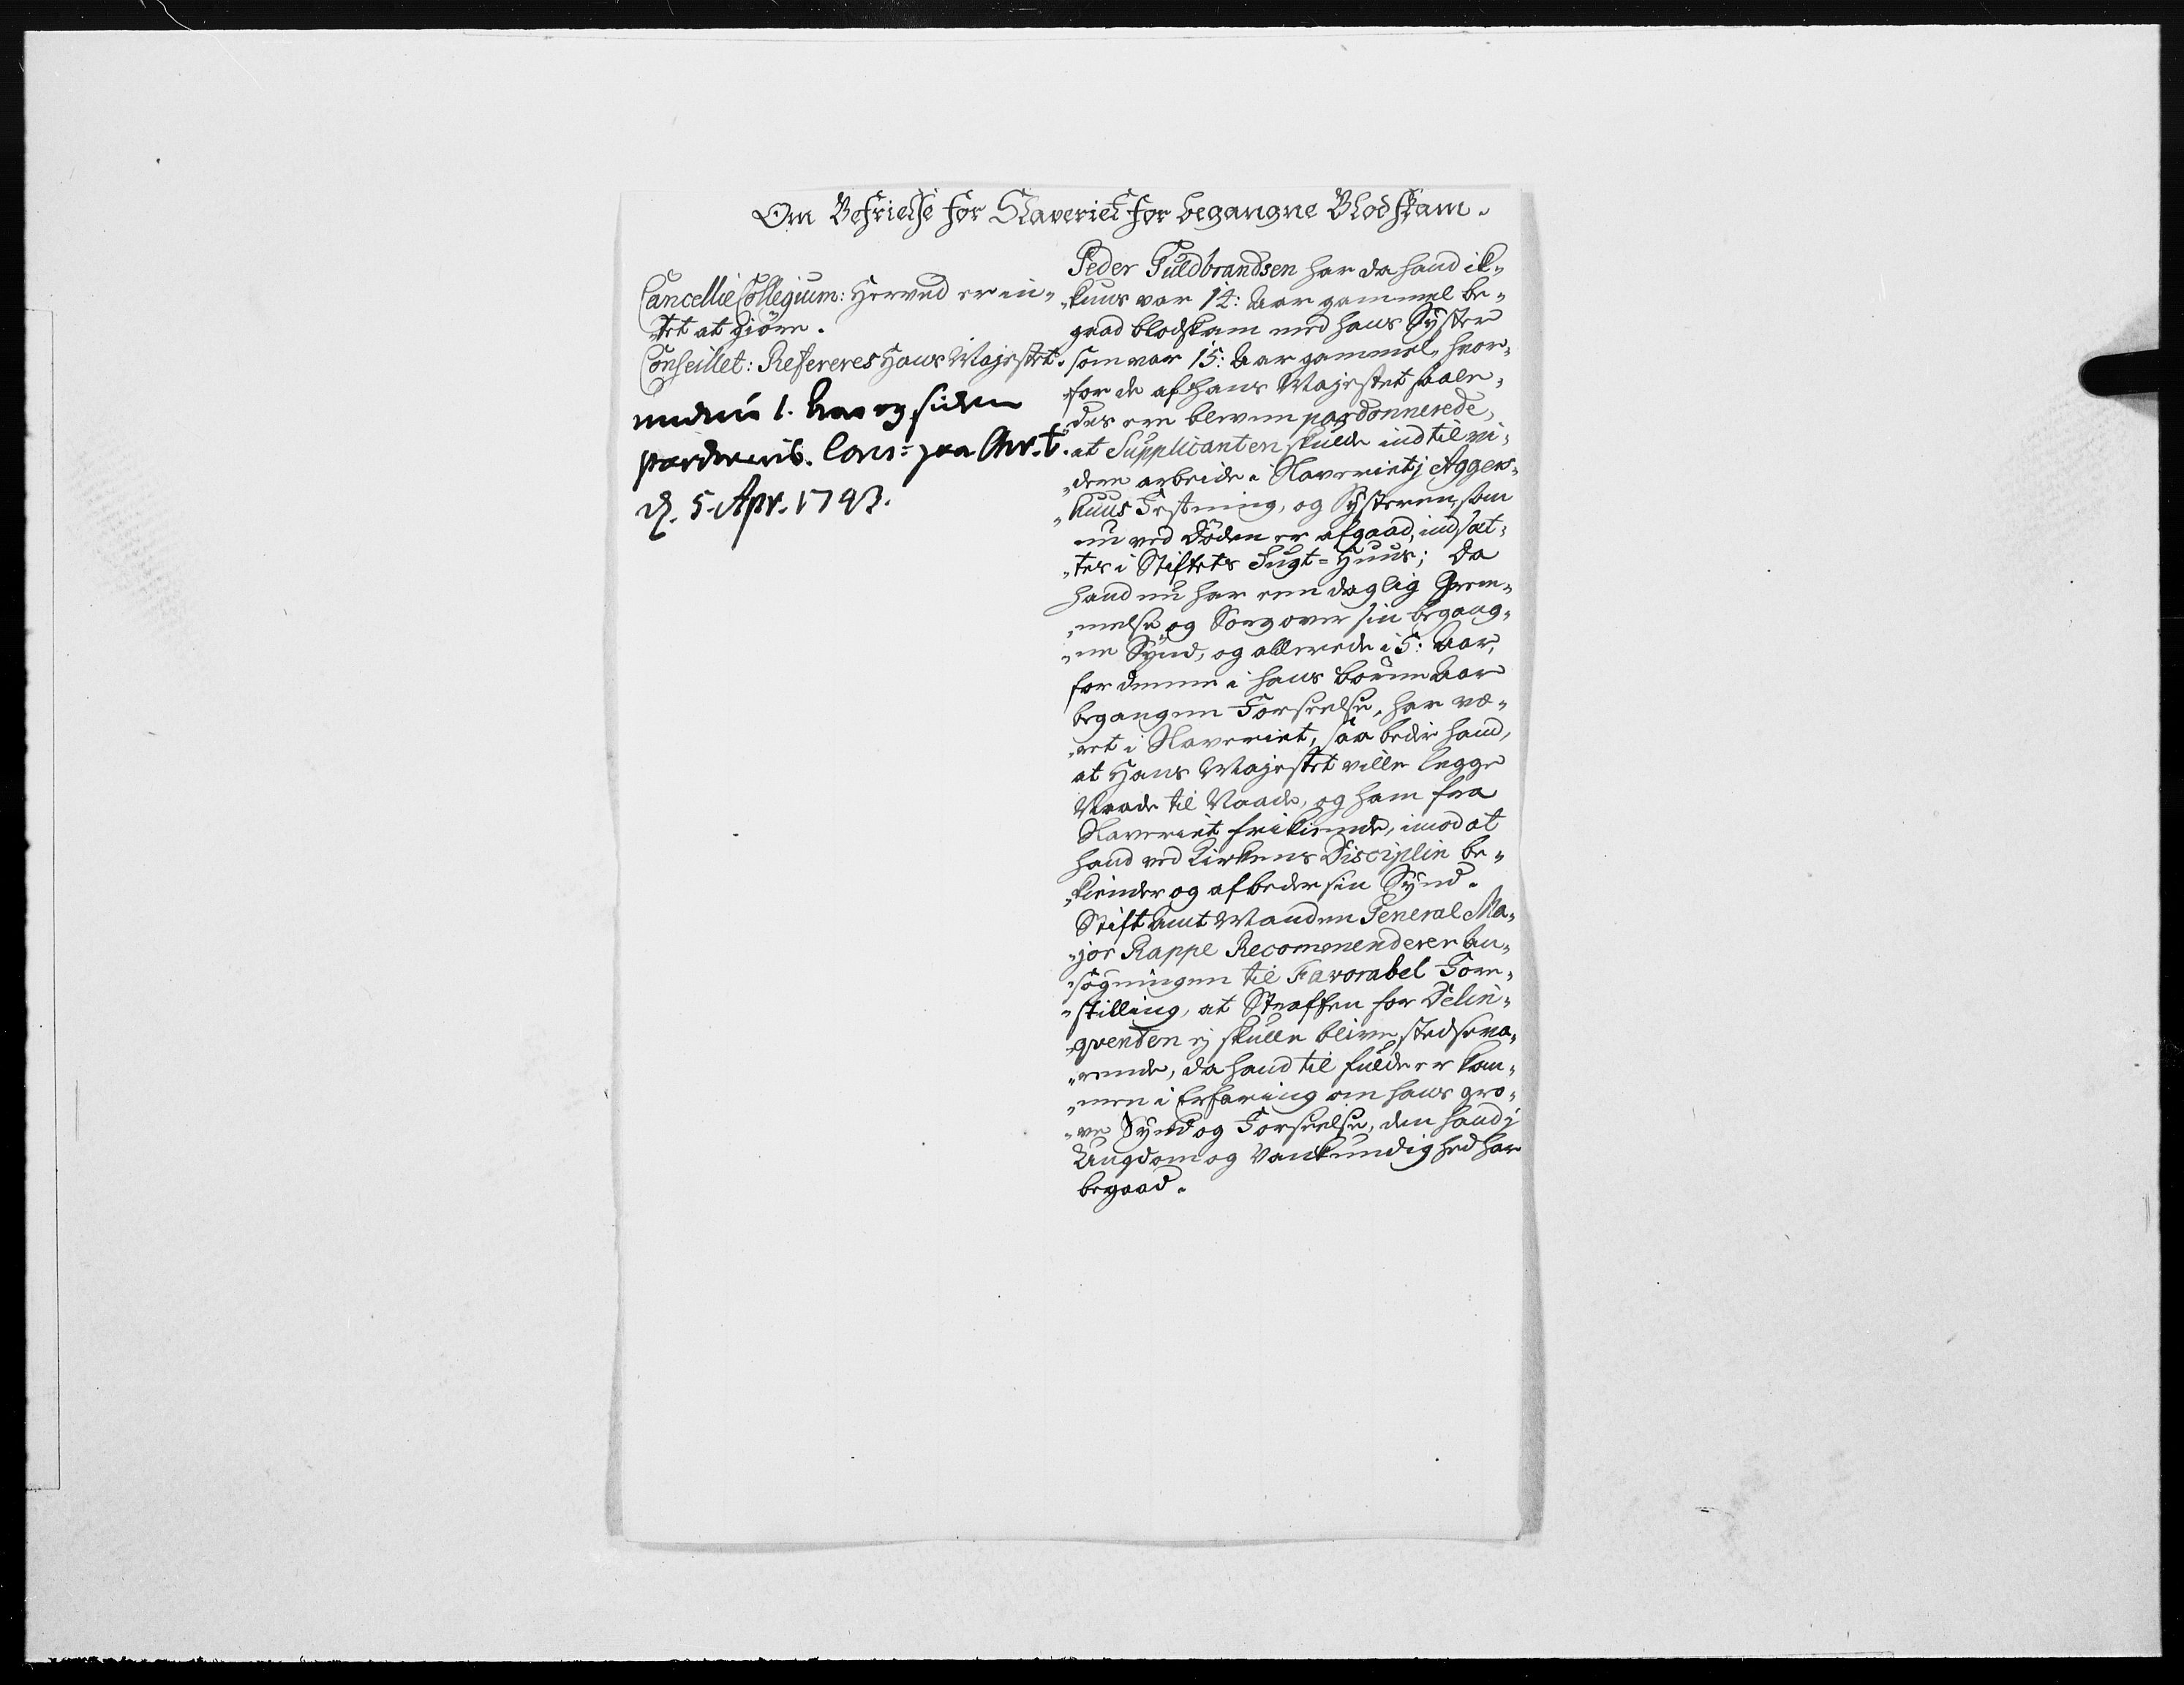 Om Befrielse for Slaveriet for begangne Blodskam.
Cancellie Collegium: Herved er in-
-tet at giöre.
Conseillet: Refereres Hans Majestet.
endnu 1. Aar og siden
pardonnis. Cons: paa Chr.b.
d. 5. Apr. 1743.
Peder Guldbrandsen har da hand ik-
-kuns var 14: Aar gammel be-
gaad blodskam med hans Syster
som var 15: Aar gammel, hvor-
-for de af Hans Majestet saale-
-des ere blevne pardonnerede,
at Supplicanten skulde indtil vi-
-dere arbeide i Slaveriet j Aggers-
-huus Festning, og Systeren, som
nu ved Döden er afgaad, indsæt-
-tes i Stiftets Tugt-Huus; Da
hand nu har een daglig Grem-
-melse og Sorg over sin begang-
-ne Synd, og allerede i 5: Aar,
for denne i hans börne Aar
begangen Forseelse, har væ-
-ret i Slaveriet, saa beder hand,
at Hans Majestet ville legge
Naade til Naade, og ham fra
Slaveriet frikiende, imod at
hand ved Kirkens Disciplin be-
-kiender og afbeder sin Synd.
Stift Amt Manden General Ma-
-jor Rappe Recommenderer An-
-sögningen til Favorabel Fore-
-stilling, at Straffen for Delin-
-qventen ej skulle blive stedseva-
-rende, da hand til fulde er kom-
-men i Erfaring om hans gro-
-ve Synd og Forseelse, den hand j
Ungdom og Vankundighed har
begaad.